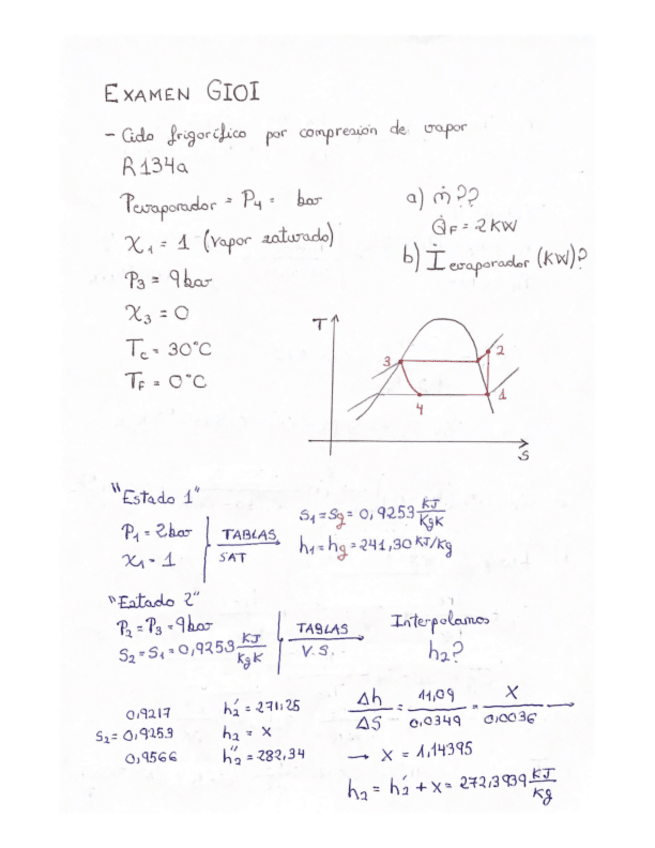 EXAMEN GIOI
- Ciclo frigorífico por compresión de vapor
R134a
Pevaporador = P4 = bar
X1 = 1 (Vapor saturado)
P3 = 9 bar
X3 = 0
Tc = 30°C
TF = 0°C
a) ṁ??
Q̇F = 2 KW
b) İ evaporador (KW)?
T
3
2
4
1
S
"Estado 1"
P1 = 2 bar
X1 = 1
TABLAS
SAT
S1 = Sg = 0,9253 KJ/KgK
h1 = hg = 241,30 KJ/Kg
"Estado 2"
P2 = P3 = 9 bar
S2 = S1 = 0,9253 KJ/KgK
TABLAS
V.S.
Interpolamos
h2?
0,9217 h2' = 271,25
S2 = 0,9253 h2 = x
0,9566 h2'' = 282,34
Δh/ΔS = 11,09/0,0349 = X/0,0036 →
→ X = 1,14395
h2 = h2' + x = 272,3939 KJ/Kg